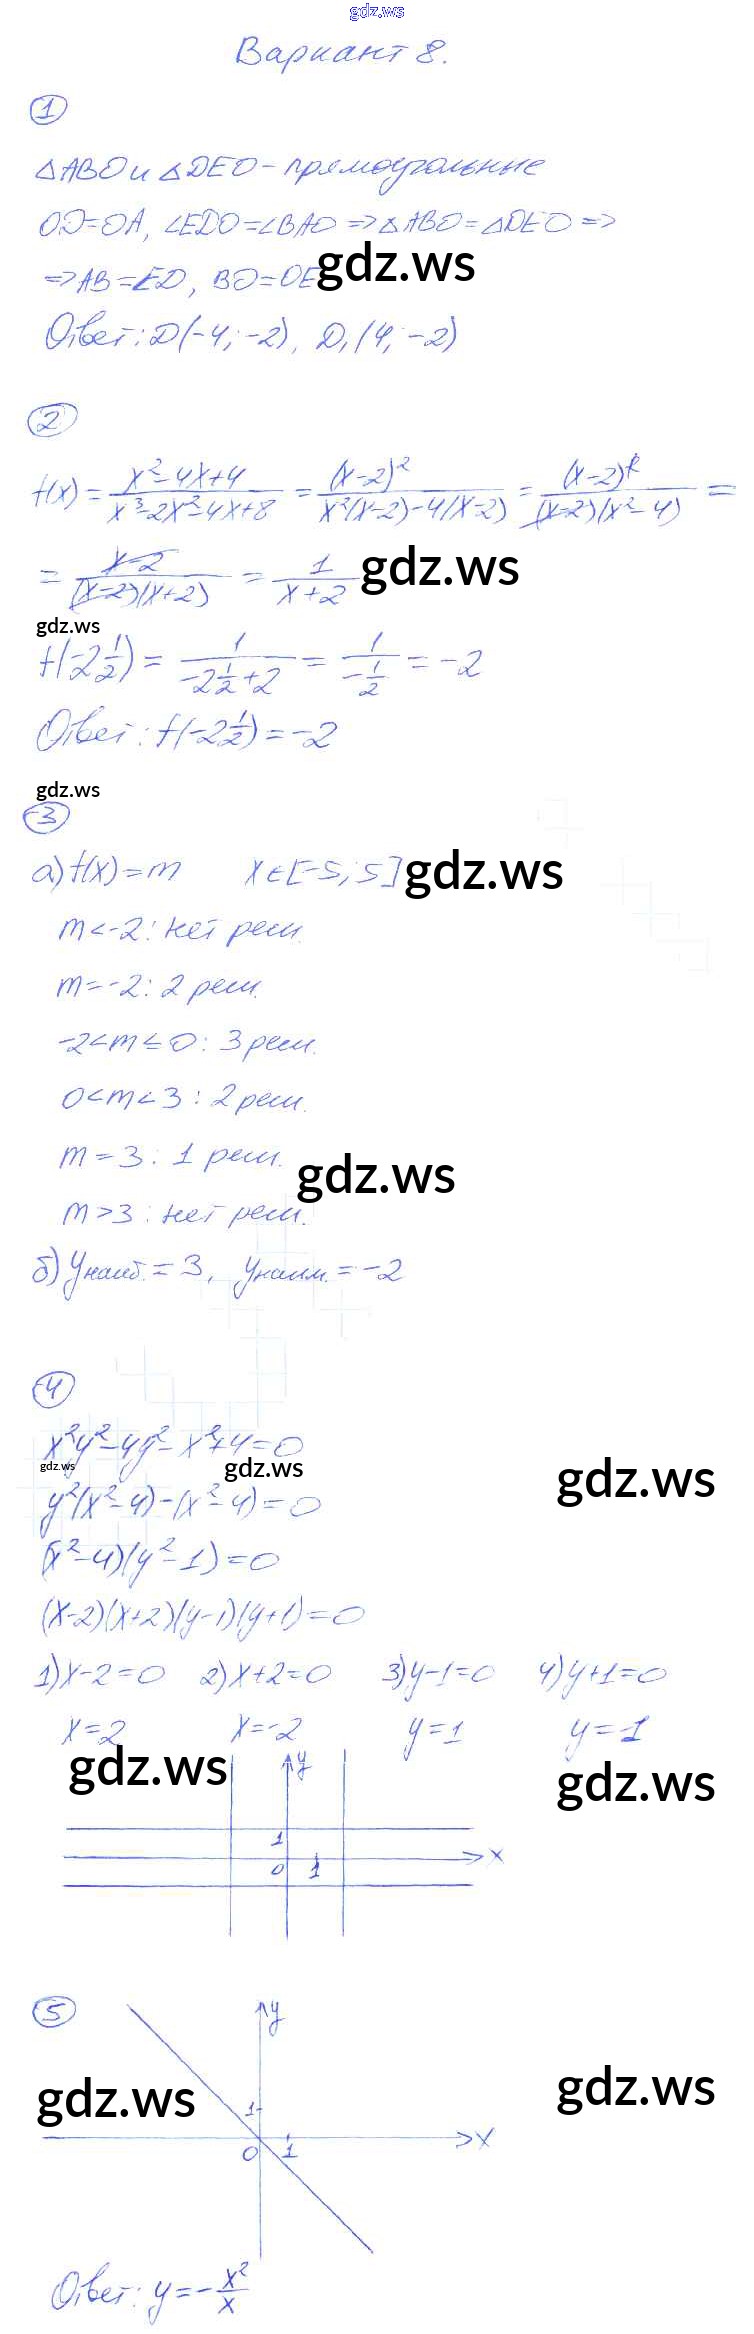 gdz.ws
Вариант 8.
1
△ABO и △DEO - прямоугольные
OD=OA, ∠EDO=∠BAO => △ABO=△DEO =>
=> AB=ED, BO=OE gdz.ws
Ответ: D(-4; -2), D₁(4; -2)
2
f(x) = (x²-4x+4)/(x³-2x²-4x+8) = (x-2)²/(x²(x-2)-4(x-2)) = (x-2)²/((x-2)(x²-4)) =
= (x-2)/((x-2)(x+2)) = 1/(x+2) gdz.ws
gdz.ws
f(-2 1/2) = 1/(-2 1/2 + 2) = 1/(-1/2) = -2
Ответ: f(-2 1/2) = -2
gdz.ws
3
а) f(x) = m x∈[-5; 5] gdz.ws
m<-2: нет реш.
m=-2: 2 реш.
-2<m≤0: 3 реш.
0<m<3: 2 реш.
m=3: 1 реш.
gdz.ws
m>3: нет реш.
б) yнаиб. = 3, yнаим. = -2
4
x²y²-4y²-x²+4=0
gdz.ws gdz.ws gdz.ws
y²(x²-4)-(x²-4)=0
(x²-4)(y²-1)=0
(x-2)(x+2)(y-1)(y+1)=0
1) x-2=0 2) x+2=0 3) y-1=0 4) y+1=0
x=2 x=-2 y=1 y=-1
gdz.ws y gdz.ws
1
x
0 1
5
y
gdz.ws gdz.ws
1
x
0 1
Ответ: y = -x²/x